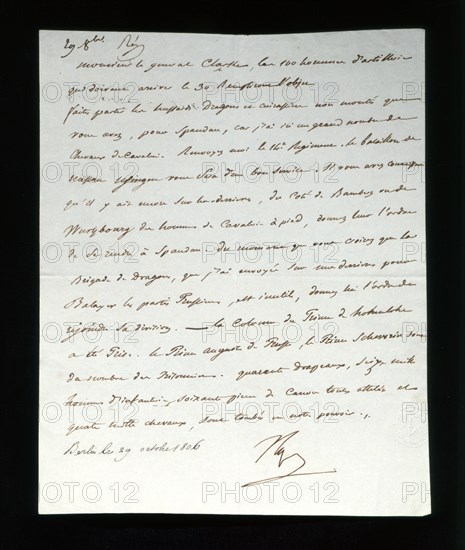 29 8bre Rép
monsieur le general Clarke, les 100 hommes d'artillerie
qui doivent arriver le 30 n'ont plus d'objet
faites partir les hussards Dragons et cuirassiers non montés que
vous avez, pour Spandau, car j'ai ici un grand nombre de
Chevaux de Cavalerie. Renvoyez aussi le 14e Regiment. le bataillon de
vous sera d'un bon service. Si vous avez
qu'il y ait encore sur les derrieres, du Coté de Bamberg ou de
Wurzbourg des hommes de Cavalerie à pied, donnez leur l'ordre
de se rendre à Spandau. Du moment que vous croirez que la
Brigade de Dragons, que j'ai envoyée sur mes derrieres pour
Balayer les partis Prussiens, est inutile, donnez lui l'ordre de
rejoindre sa division. — la Colonne du Prince d'hohenlohe
a été Prise. le Prince auguste de Prusse, le Prince Schwerin sont
du nombre des Prisonniers. quarante drapeaux, seize mille
hommes d'infanterie, soixante pieces de Canon toutes attelées et
quatre mille chevaux, sont tombés en notre pouvoir.
Berlin le 29 octobre 1806
Np